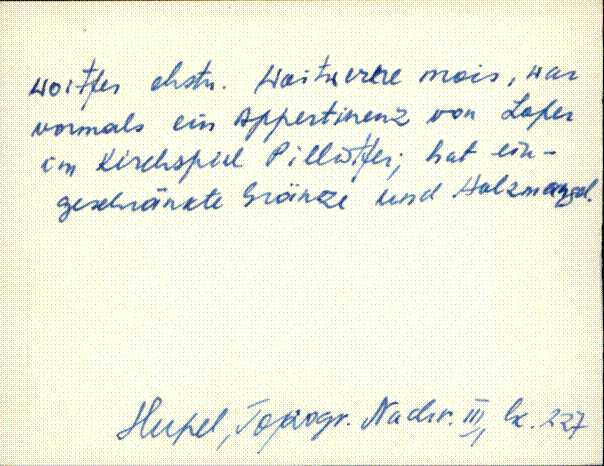 Woitfer ehstn. Woitwerre mois, war
vormals ein Appertinenz von Lofer
im Kirchspiel Pillistfer; hat ein-
geschränkte Gränze und Holzmangel.
Hupel, Topogr. Nachr. III, lk. 227